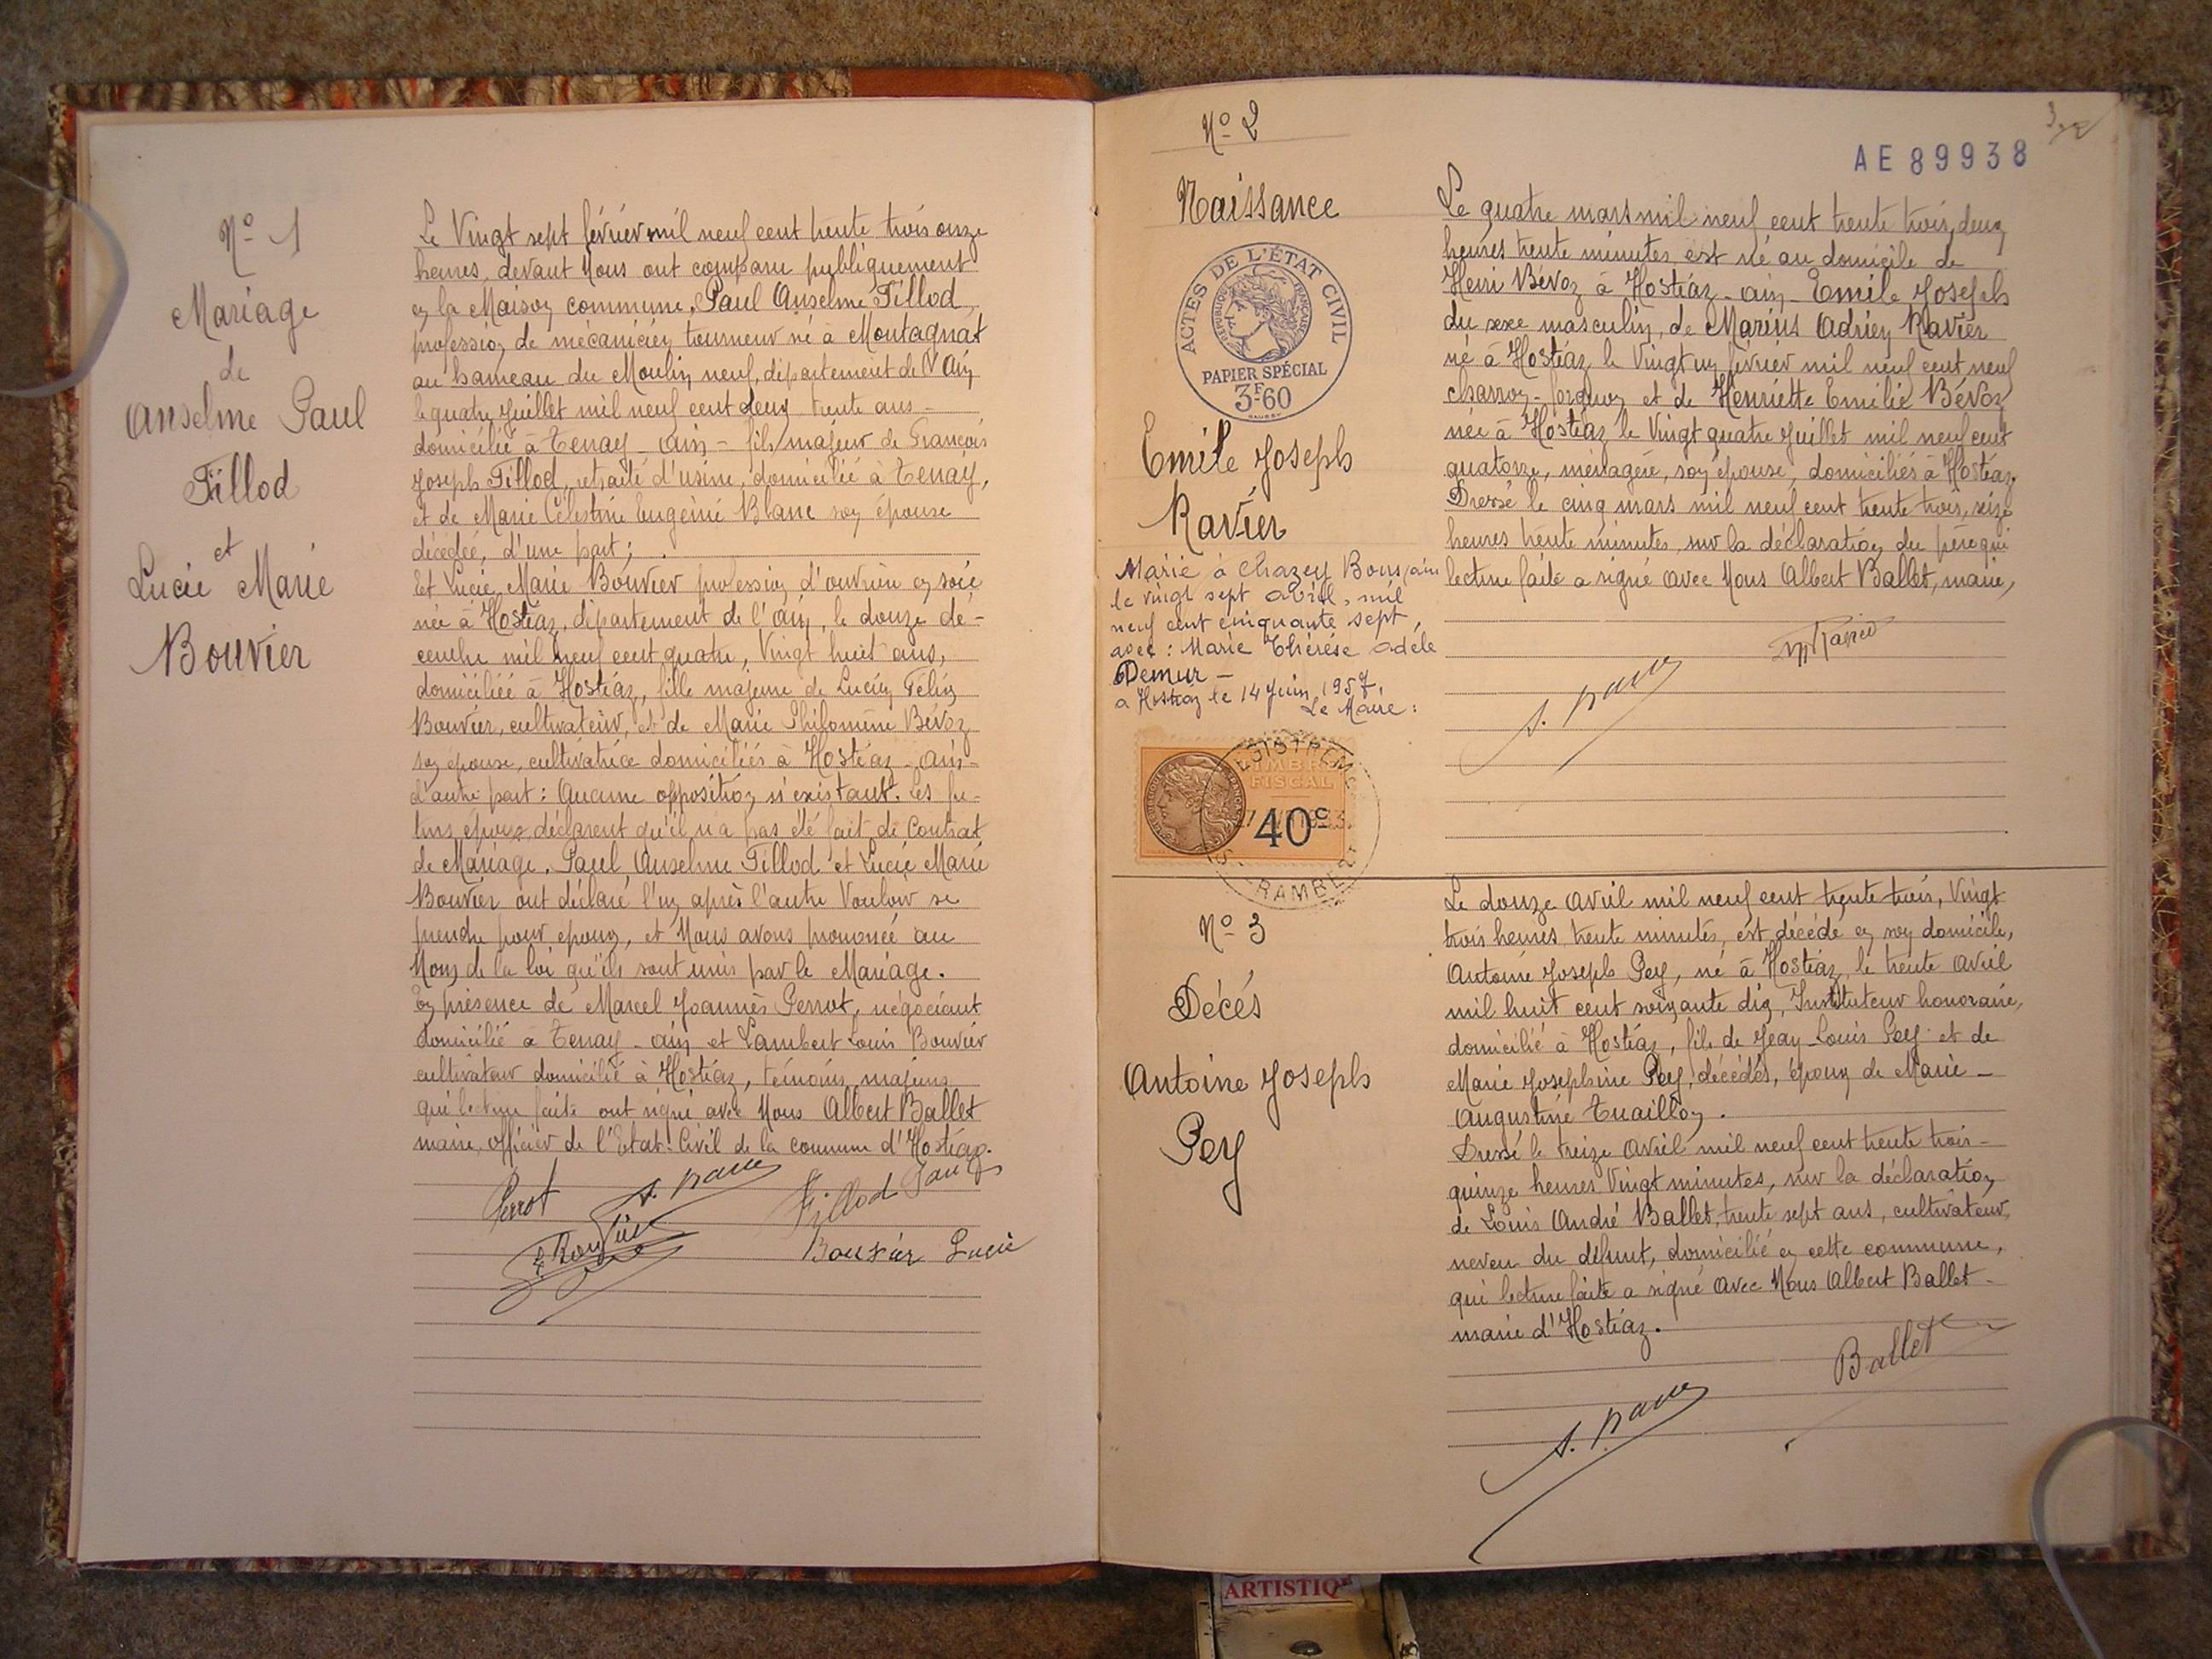 N° 1
Mariage
de
Anselme Paul
Fillod
et
Lucie Marie
Bouvier
Le Vingt sept février mil neuf cent trente trois onze
heures, devant Nous ont comparu publiquement
en la Maison commune, Paul Anselme Fillod,
profession de mécanicien tourneur né à Montagnat
au hameau du Moulin neuf, département de l'Ain
le quatre Juillet mil neuf cent deux trente ans -
domicilié à Tenay - Ain - fils majeur de François
Joseph Fillod, retraité d'usine, domicilié à Tenay,
et de Marie Célestine Eugénie Blanc son épouse
décédée, d'une part;
Et Lucie Marie Bouvier profession d'ouvrière en soie
née à Hostiaz, département de l'Ain, le douze dé-
cembre mil neuf cent quatre, Vingt huit ans,
domiciliée à Hostiaz, fille majeure de Lucien Félix
Bouvier, cultivateur, et de Marie Philomène Bévoz
son épouse, cultivatrice domiciliés à Hostiaz - Ain -
d'autre part: Aucune opposition n'existant. Les fu-
turs époux déclarent qu'il n'a pas été fait de Contrat
de Mariage. Paul Anselme Fillod et Lucie Marie
Bouvier ont déclaré l'un après l'autre Vouloir se
prendre pour époux, et Nous avons prononcé au
Nom de la loi qu'ils sont unis par le Mariage.
En présence de Marcel Joannès Perrot, négociant
domicilié à Tenay - Ain et Lambert Louis Bouvier
cultivateur domicilié à Hostiaz, témoins majeurs
qui lecture faite ont signé avec Nous Albert Ballet
maire, officier de l'Etat-Civil de la commune d'Hostiaz.
Perrot
Fillod Paul
L Bouvier
Bouvier Lucie
N° 2
AE 89938
3
Naissance
ACTES DE L'ÉTAT CIVIL
RÉPUBLIQUE FRANÇAISE
PAPIER SPÉCIAL
3F60
Emile Joseph
Ravier
Marié à Chazey Bons, Ain
le vingt sept avril, mil
neuf cent cinquante sept,
avec: Marie Thérèse Adèle
Demur -
a Hostiaz le 14 Juin 1957,
Le Maire:
TIMBRE
FISCAL
40c
Le quatre mars mil neuf cent trente trois, deux
heures trente minutes, est né au domicile de
Henri Bévoz à Hostiaz - Ain - Emile Joseph
du sexe masculin, de Marius Adrien Ravier
né à Hostiaz le Vingt un février mil neuf cent neuf
charron-forgeron et de Henriette Emilie Bévoz
née à Hostiaz le Vingt quatre Juillet mil neuf cent
quatorze, ménagère, son épouse, domiciliés à Hostiaz.
Dressé le cinq mars mil neuf cent trente trois, seize
heures trente minutes, sur la déclaration du père qui
lecture faite a signé avec Nous Albert Ballet, maire,
N° 3
Décés
Antoine Joseph
Pey
Le douze avril mil neuf cent trente trois, Vingt
trois heures trente minutes, est décédé en son domicile,
Antoine Joseph Pey, né à Hostiaz, le trente avril
mil huit cent soixante dix, Instituteur honoraire,
domicilié à Hostiaz, fils de Jean-Louis Pey et de
Marie Joséphine Pey, décédés, époux de Marie -
Augustine Tuaillon.
Dressé le treize Avril mil neuf cent trente trois -
quinze heures Vingt minutes, sur la déclaration
de Louis André Ballet, trente sept ans, cultivateur,
neveu du défunt, domicilié en cette commune,
qui lecture faite a signé avec Nous Albert Ballet -
maire d'Hostiaz.
Ballet
ARTISTIQ